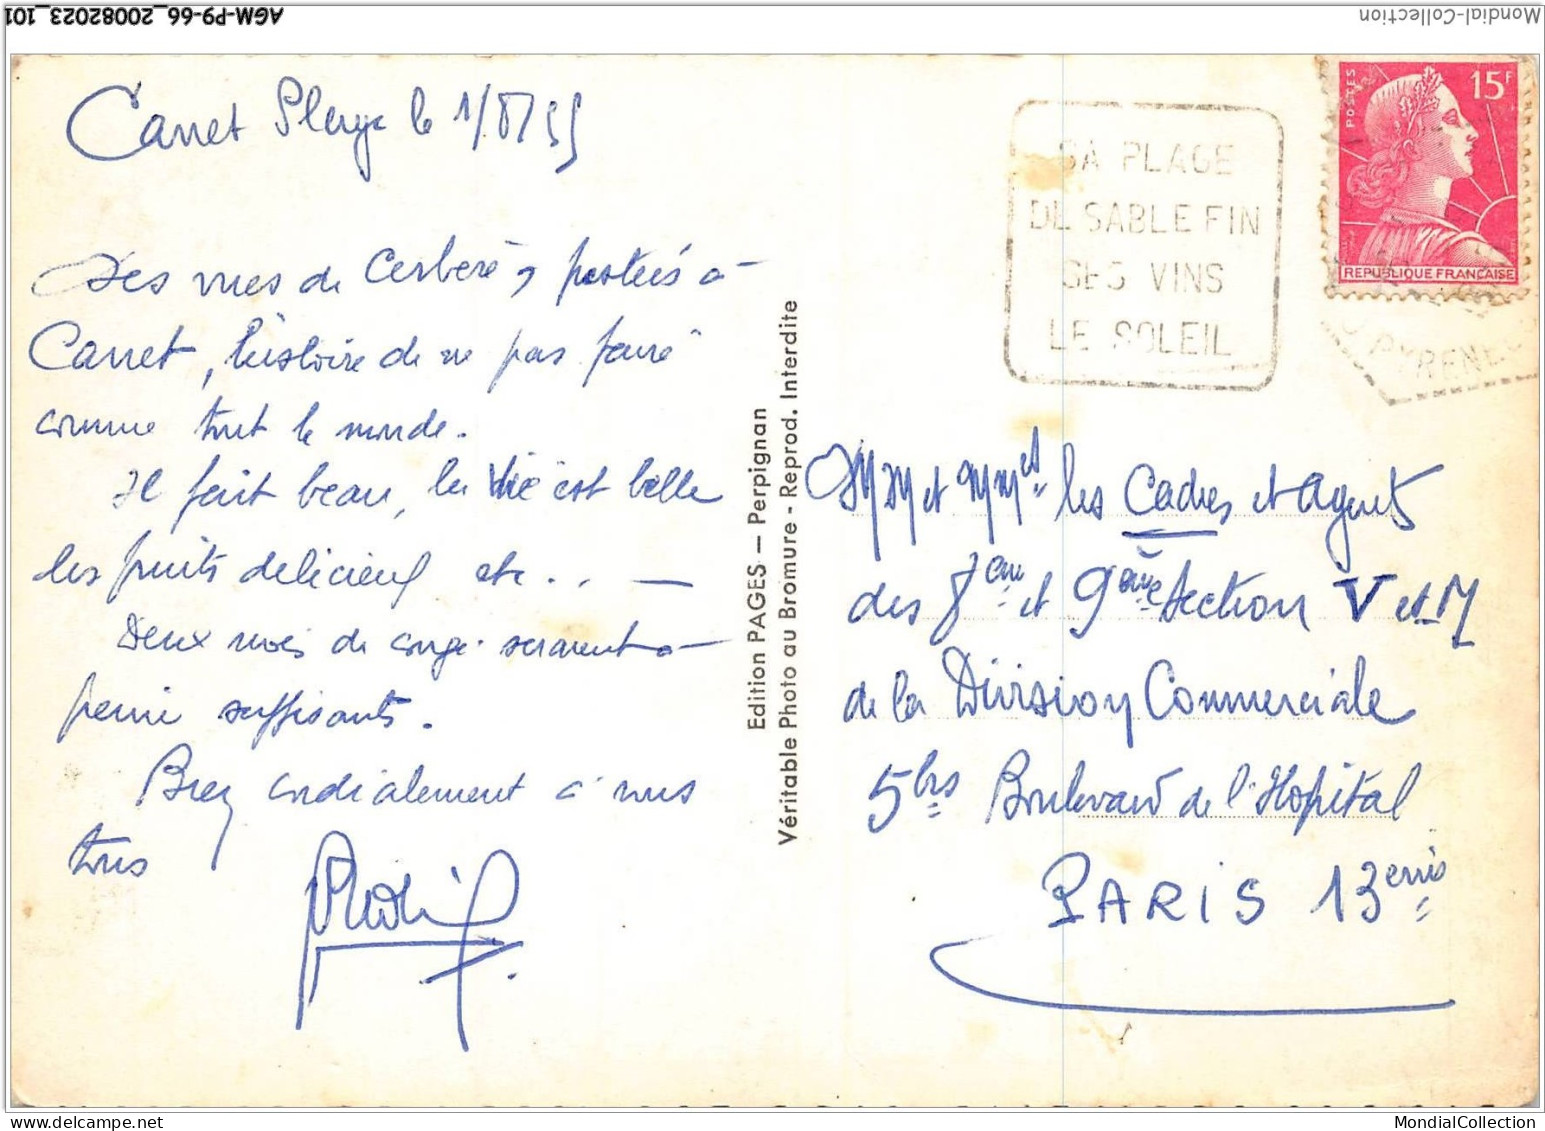 AGM-P9-66_20082023_101
Mondial-Collection
Canet Plage le 1/8/55
Des vues de Cerbère, postées à
Canet, l'histoire de ne pas faire
comme tout le monde.
Il fait beau, la vie est belle
les fruits délicieux etc...—
Deux mois de congé seraient à
peine suffisants.
Bien cordialement à vous
tous
Edition PAGES — Perpignan
Véritable Photo au Bromure - Reprod. Interdite
SA PLAGE
DE SABLE FIN
SES VINS
LE SOLEIL
POSTES
15F
REPUBLIQUE FRANCAISE
PYRENEES
MM et Mmes les Cadres et Agents
des 8eme et 9ème Section V et M
de la Division Commerciale
5bis Boulevard de l'Hopital
PARIS 13eme
MondialCollection